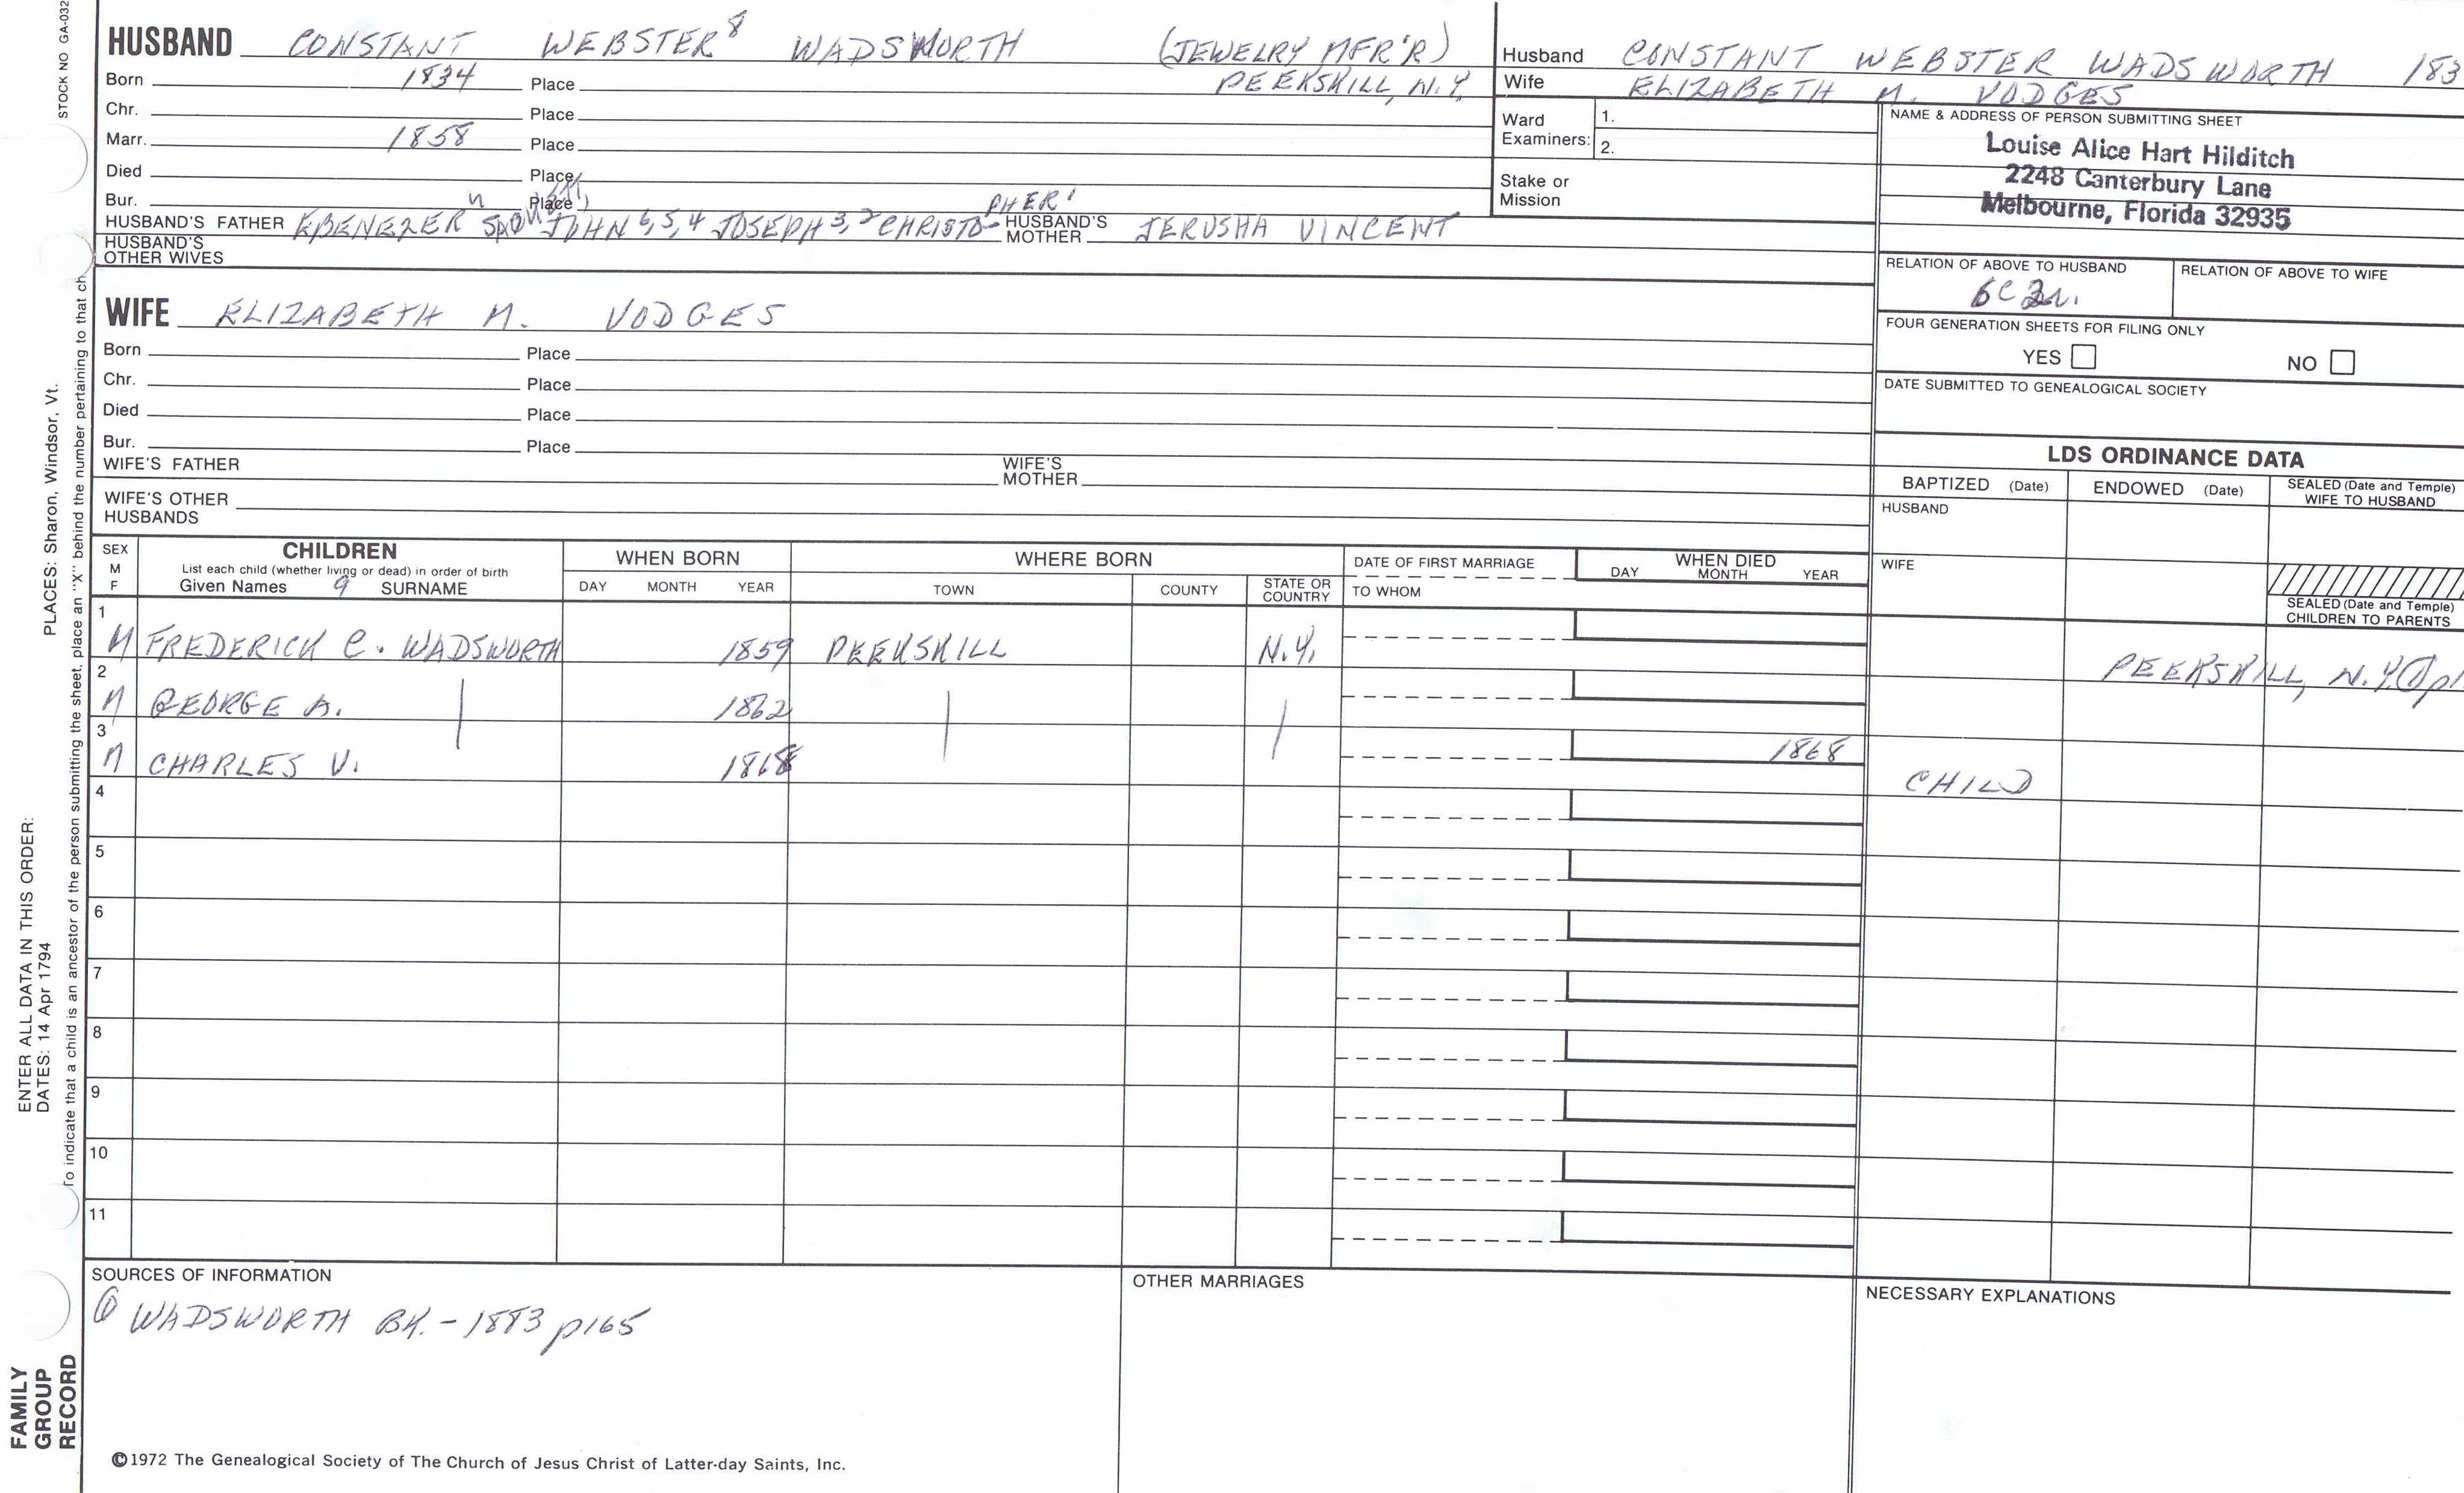 STOCK NO GA-032
HUSBAND CONSTANT WEBSTER⁸ WADSWORTH (JEWELRY MFR'R)
Born 1834 Place PEEKSKILL, N.Y.
Chr. Place
Marr. 1858 Place
Died Place
Bur. Place
HUSBAND'S FATHER EBENEZER JOHN 6,5,4 JOSEPH 3,2 CHRISTO-PHER' HUSBAND'S MOTHER JERUSHA VINCENT
HUSBAND'S OTHER WIVES
Husband CONSTANT WEBSTER WADSWORTH 183
Wife ELIZABETH M. VODGES
Ward Examiners: 1.
2.
Stake or Mission
NAME & ADDRESS OF PERSON SUBMITTING SHEET
Louise Alice Hart Hilditch
2248 Canterbury Lane
Melbourne, Florida 32935
RELATION OF ABOVE TO HUSBAND RELATION OF ABOVE TO WIFE
FOUR GENERATION SHEETS FOR FILING ONLY
YES NO
DATE SUBMITTED TO GENEALOGICAL SOCIETY
WIFE ELIZABETH M. VODGES
Born Place
Chr. Place
Died Place
Bur. Place
WIFE'S FATHER WIFE'S MOTHER
WIFE'S OTHER HUSBANDS
LDS ORDINANCE DATA
BAPTIZED (Date) ENDOWED (Date) SEALED (Date and Temple) WIFE TO HUSBAND
HUSBAND
WIFE
SEALED (Date and Temple) CHILDREN TO PARENTS
SEX M F
CHILDREN
List each child (whether living or dead) in order of birth
Given Names 9 SURNAME
WHEN BORN
DAY MONTH YEAR
WHERE BORN
TOWN COUNTY STATE OR COUNTRY
DATE OF FIRST MARRIAGE
TO WHOM
WHEN DIED
DAY MONTH YEAR
1 M FREDERICK C. WADSWORTH 1859 PEEKSKILL N.Y. PEEKSKILL, N.Y.
2 M GEORGE A. 1862
3 M CHARLES V. 1868 1868 CHILD
4
5
6
7
8
9
10
11
SOURCES OF INFORMATION
① WADSWORTH BK. - 1883 p165
OTHER MARRIAGES
NECESSARY EXPLANATIONS
©1972 The Genealogical Society of The Church of Jesus Christ of Latter-day Saints, Inc.
FAMILY GROUP RECORD
ENTER ALL DATA IN THIS ORDER:
DATES: 14 Apr 1794
PLACES: Sharon, Windsor, Vt.
To indicate that a child is an ancestor of the person submitting the sheet, place an "X" behind the number pertaining to that ch